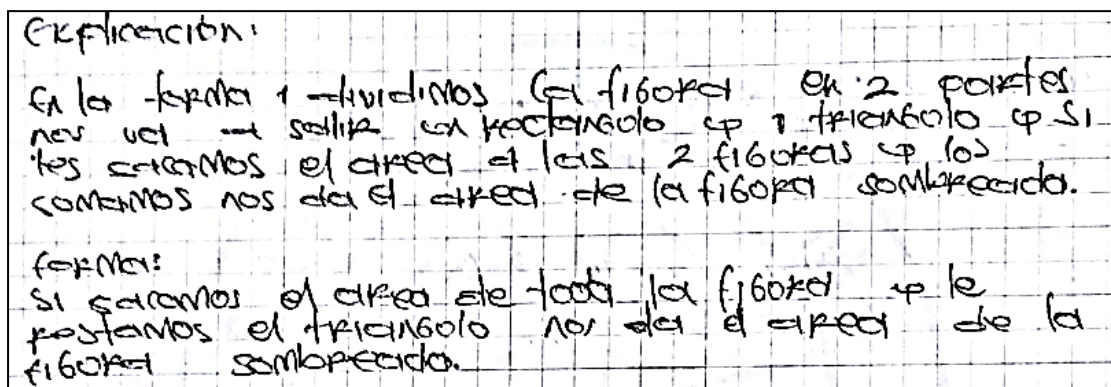 Explicación:
En la forma 1 dividimos la figora en 2 partes
nos va a salir un rectangolo y 1 triangolo y si
les sacamos el area a las 2 figoras y los
sumamos nos da el area de la figora sombreada.
forma:
si sacamos el area de toda la figora y le
restamos el triangolo nos da el area de la
figora sombreada.